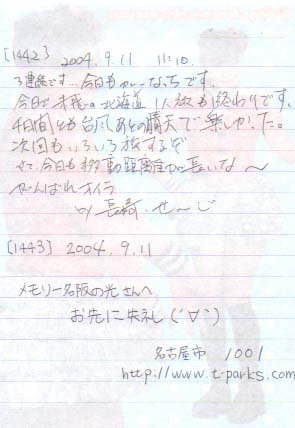 [1442] 2004.9.11 11:10
3連続です…今日もカレーなっちです。
今日で 北海道 1人旅も終わりです。
4日間とも台風あとの晴天で楽しかった。
次回もいろいろ旅するぞ
さて、今日も移動距離が長いな〜
がんばれオイラ
by 長崎 せーじ
[1443] 2004.9.11
メモリー名阪の光さんへ
お先に失礼(´∀`)
名古屋市 1001
http://www.t-parks.com